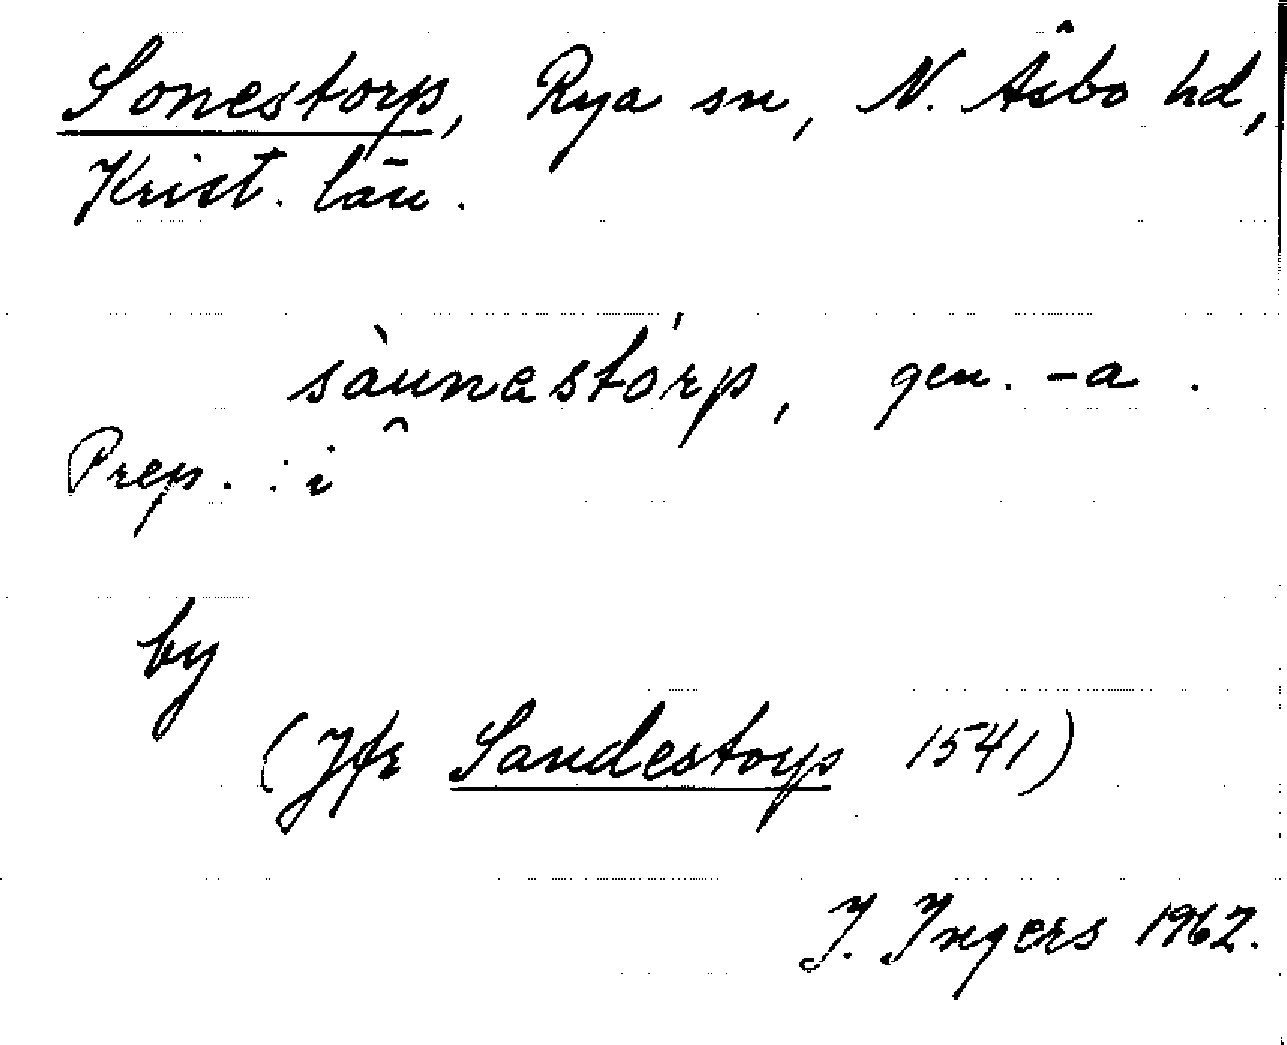 Sonestorp, Rya sn, N. Åsbo hd,
Krist. län.
sàu̯nestó́rp, gen. -a.
Prep. : i
by
(Jfr Sandestorp 1541)
I. Ingers 1962.